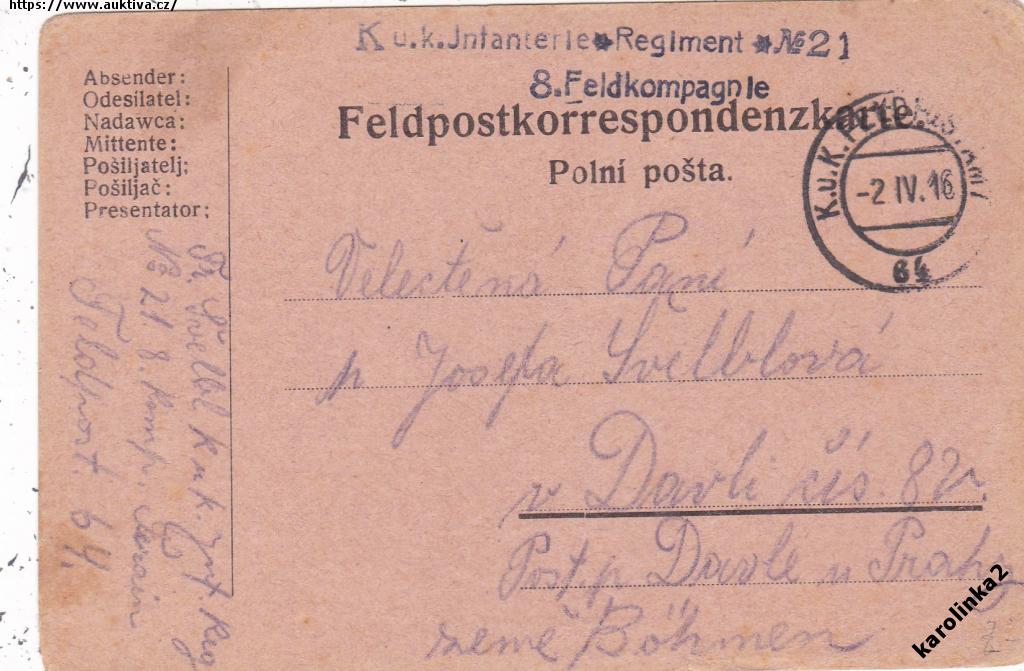 https://www.auktiva.cz/
K.u.k.Infanterie Regiment №21
8.Feldkompagnie
Absender:
Odesílatel:
Nadawca:
Mittente:
Pošiljatelj:
Pošiljač:
Presentator:
Feldpostkorrespondenzkarte.
Polní pošta.
K.u.K.
-2 IV. 16
64
Velectěná Paní
p Josefa Švelblová
v Davli čís 82
Post p Davle u Prahy
země Böhmen
Fr. Švelbl k u k. Inf Reg
No 21. 8. Komp.
Feldpost. 64
karolinka2